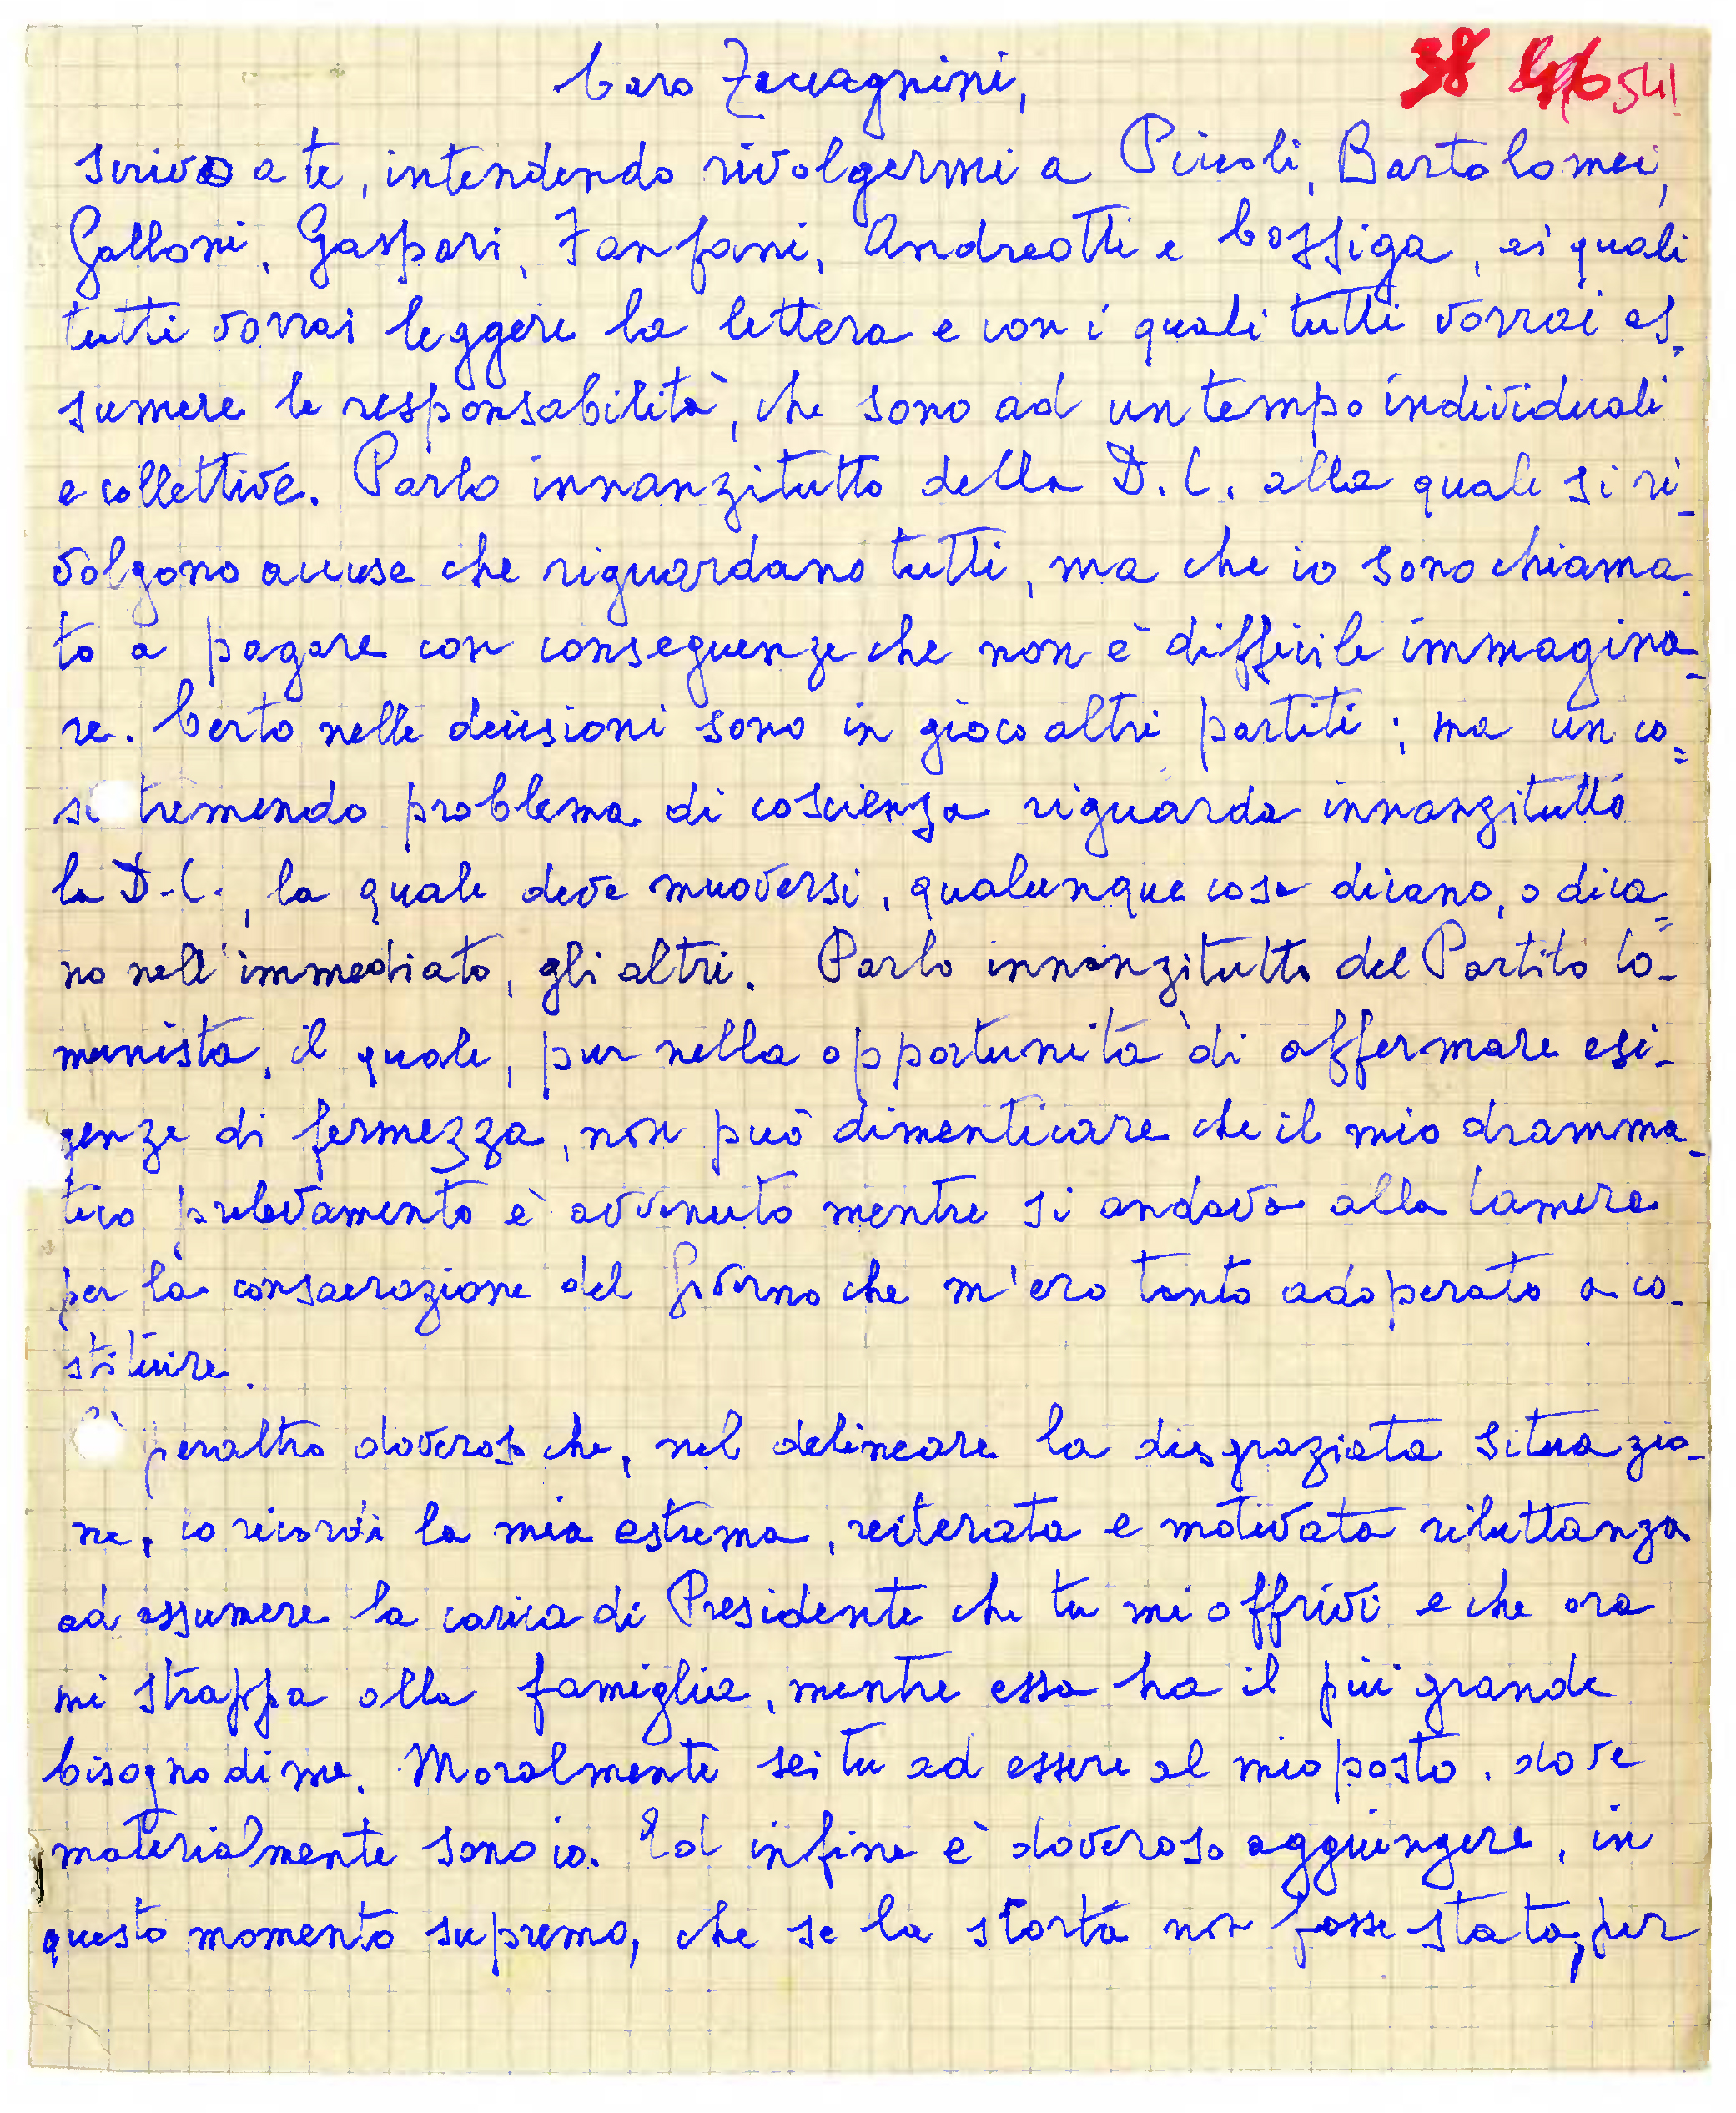 Caro Zaccagnini,
38 541
scrivo a te, intendendo rivolgermi a Piccoli, Bartolomei,
Galloni, Gaspari, Fanfani, Andreotti e Cossiga, ai quali
tutti vorrai leggere la lettera e con i quali tutti vorrai as-
sumere le responsabilità, che sono ad un tempo individuali
e collettive. Parlo innanzitutto della D.C. alla quale si ri-
volgono accuse che riguardano tutti, ma che io sono chiama-
to a pagare con conseguenze che non è difficile immagina-
re. Certo nelle decisioni sono in gioco altri partiti; ma un co=
sì tremendo problema di coscienza riguarda innanzitutto
la D.C., la quale deve muoversi, qualunque cosa dicano, o dica=
no nell'immediato, gli altri. Parlo innanzitutto del Partito Co-
munista, il quale, pur nella opportunità di affermare esi-
genze di fermezza, non può dimenticare che il mio dramma-
tico prelevamento è avvenuto mentre si andava alla Camera
per la consacrazione del Governo che m'ero tanto adoperato a co-
stituire.
È peraltro doveroso che, nel delineare la disgraziata situazio-
ne, io ricordi la mia estrema, reiterata e motivata riluttanza
ad assumere la carica di Presidente che tu mi offrivi e che ora
mi strappa alla famiglia, mentre essa ha il più grande
bisogno di me. Moralmente sei tu ad essere al mio posto, dove
materialmente sono io. Ed infine è doveroso aggiungere, in
questo momento supremo, che se la scorta non fosse stata, per